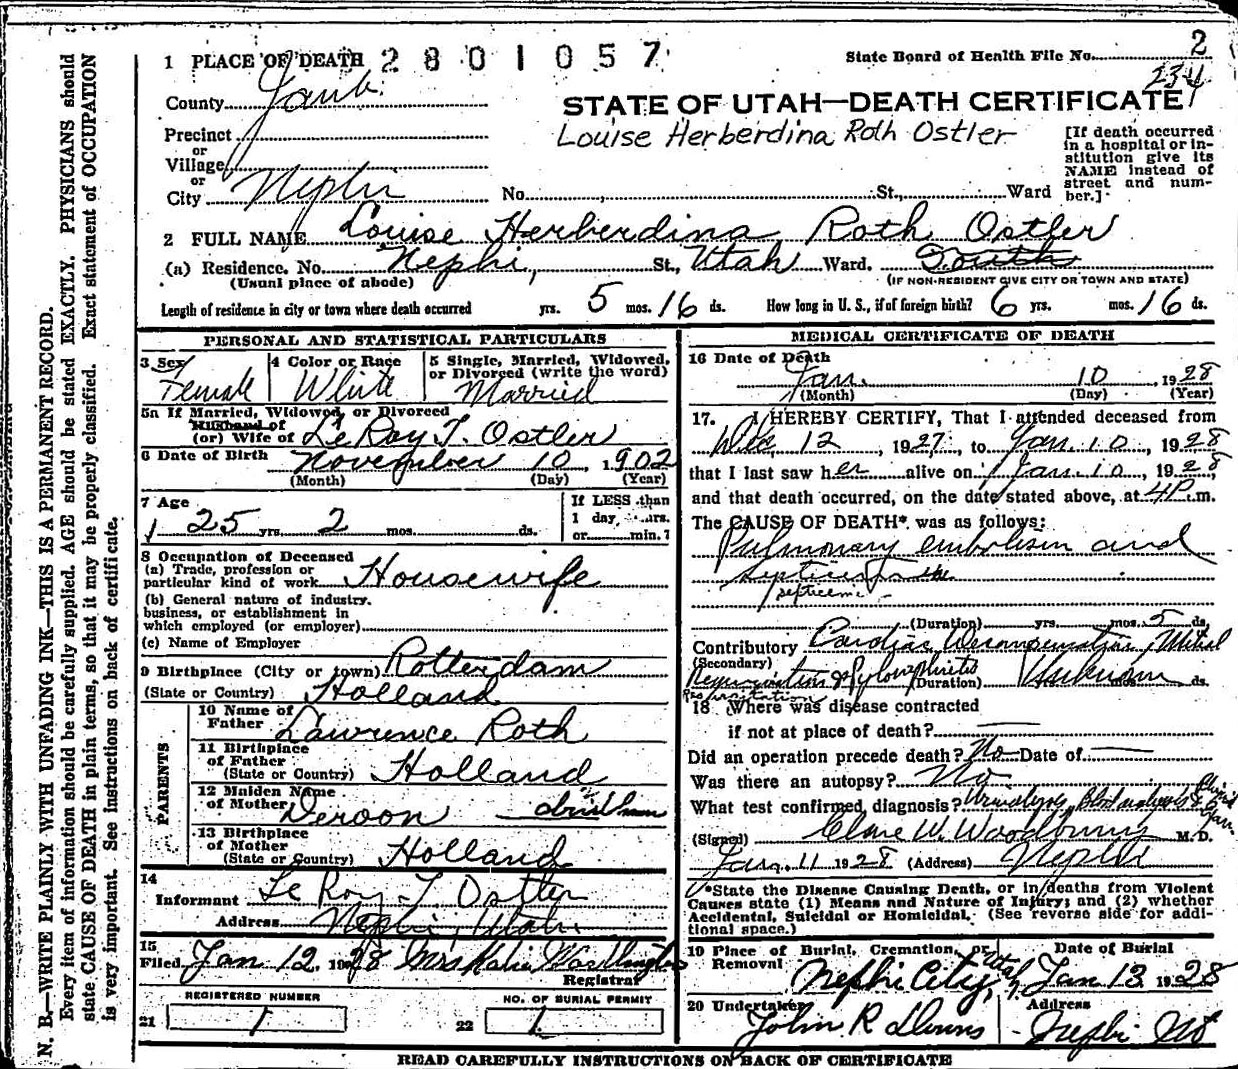 1 PLACE OF DEATH 2801057
State Board of Health File No. 2
234
County Juab
STATE OF UTAH—DEATH CERTIFICATE
Louise Herberdina Roth Ostler
Precinct
or
Village
or
City Nephi No. St., Ward
[If death occurred in a hospital or in-
stitution give its
NAME instead of
street and num-
ber.]
2 FULL NAME Louise Herberdina Roth Ostler
(a) Residence. No. Nephi, St., Utah Ward.
(Usual place of abode) (IF NON-RESIDENT GIVE CITY OR TOWN AND STATE)
Length of residence in city or town where death occurred yrs. 5 mos. 16 ds. How long in U. S., if of foreign birth? 6 yrs. mos. 16 ds.
PERSONAL AND STATISTICAL PARTICULARS
3 Sex Female
4 Color or Race White
5 Single, Married, Widowed,
or Divorced (write the word)
Married
5a If Married, Widowed, or Divorced
Husband of
(or) Wife of LeRoy T. Ostler
6 Date of Birth November 10, 1902
(Month) (Day) (Year)
7 Age
25 yrs. 2 mos. ds.
If LESS than
1 day, hrs.
or min.?
8 Occupation of Deceased
(a) Trade, profession or
particular kind of work Housewife
(b) General nature of industry.
business, or establishment in
which employed (or employer)
(c) Name of Employer
9 Birthplace (City or town) Rotterdam
(State or Country) Holland
PARENTS
10 Name of
Father Lawrence Roth
11 Birthplace
of Father
(State or Country) Holland
12 Maiden Name
of Mother Deroon
13 Birthplace
of Mother
(State or Country) Holland
14
Informant Le Roy T. Ostler
Address Nephi, Utah
15
Filed Jan 12. 1928 Mrs Katie Worthington
Registrar
REGISTERED NUMBER
21 1
NO. OF BURIAL PERMIT
22 1
MEDICAL CERTIFICATE OF DEATH
16 Date of Death
Jan. 10, 1928
(Month) (Day) (Year)
17. I HEREBY CERTIFY, That I attended deceased from
Dec 12, 1927, to Jan. 10, 1928
that I last saw her alive on Jan. 10, 1928,
and that death occurred, on the date stated above, at 4P.m.
The CAUSE OF DEATH* was as follows:
Pulmonary embolism and
(Duration) yrs. mos. 5 ds.
Contributory Cardiac Decompensation, Mitral
(Secondary)
Regurgitation & Pyelonephritis (Duration) Unknown mos. ds.
18 Where was disease contracted
if not at place of death?
Did an operation precede death? No Date of
Was there an autopsy? No
What test confirmed diagnosis? Urinalysis, Blood analysis &
(Signed) Clare W. Woodbury M. D.
Jan. 11 1928 (Address) Nephi
*State the Disease Causing Death, or in deaths from Violent
Causes state (1) Means and Nature of Injury; and (2) whether
Accidental, Suicidal or Homicidal. (See reverse side for addi-
tional space.)
19 Place of Burial, Cremation, or
Removal Nephi City, Utah
Date of Burial
Jan 13 1928
20 Undertaker
Address
READ CAREFULLY INSTRUCTIONS ON BACK OF CERTIFICATE
N. B.—WRITE PLAINLY WITH UNFADING INK—THIS IS A PERMANENT RECORD.
Every item of information should be carefully supplied. AGE should be stated EXACTLY. PHYSICIANS should
state CAUSE OF DEATH in plain terms, so that it may be properly classified. Exact statement of OCCUPATION
is very important. See instructions on back of certificate.